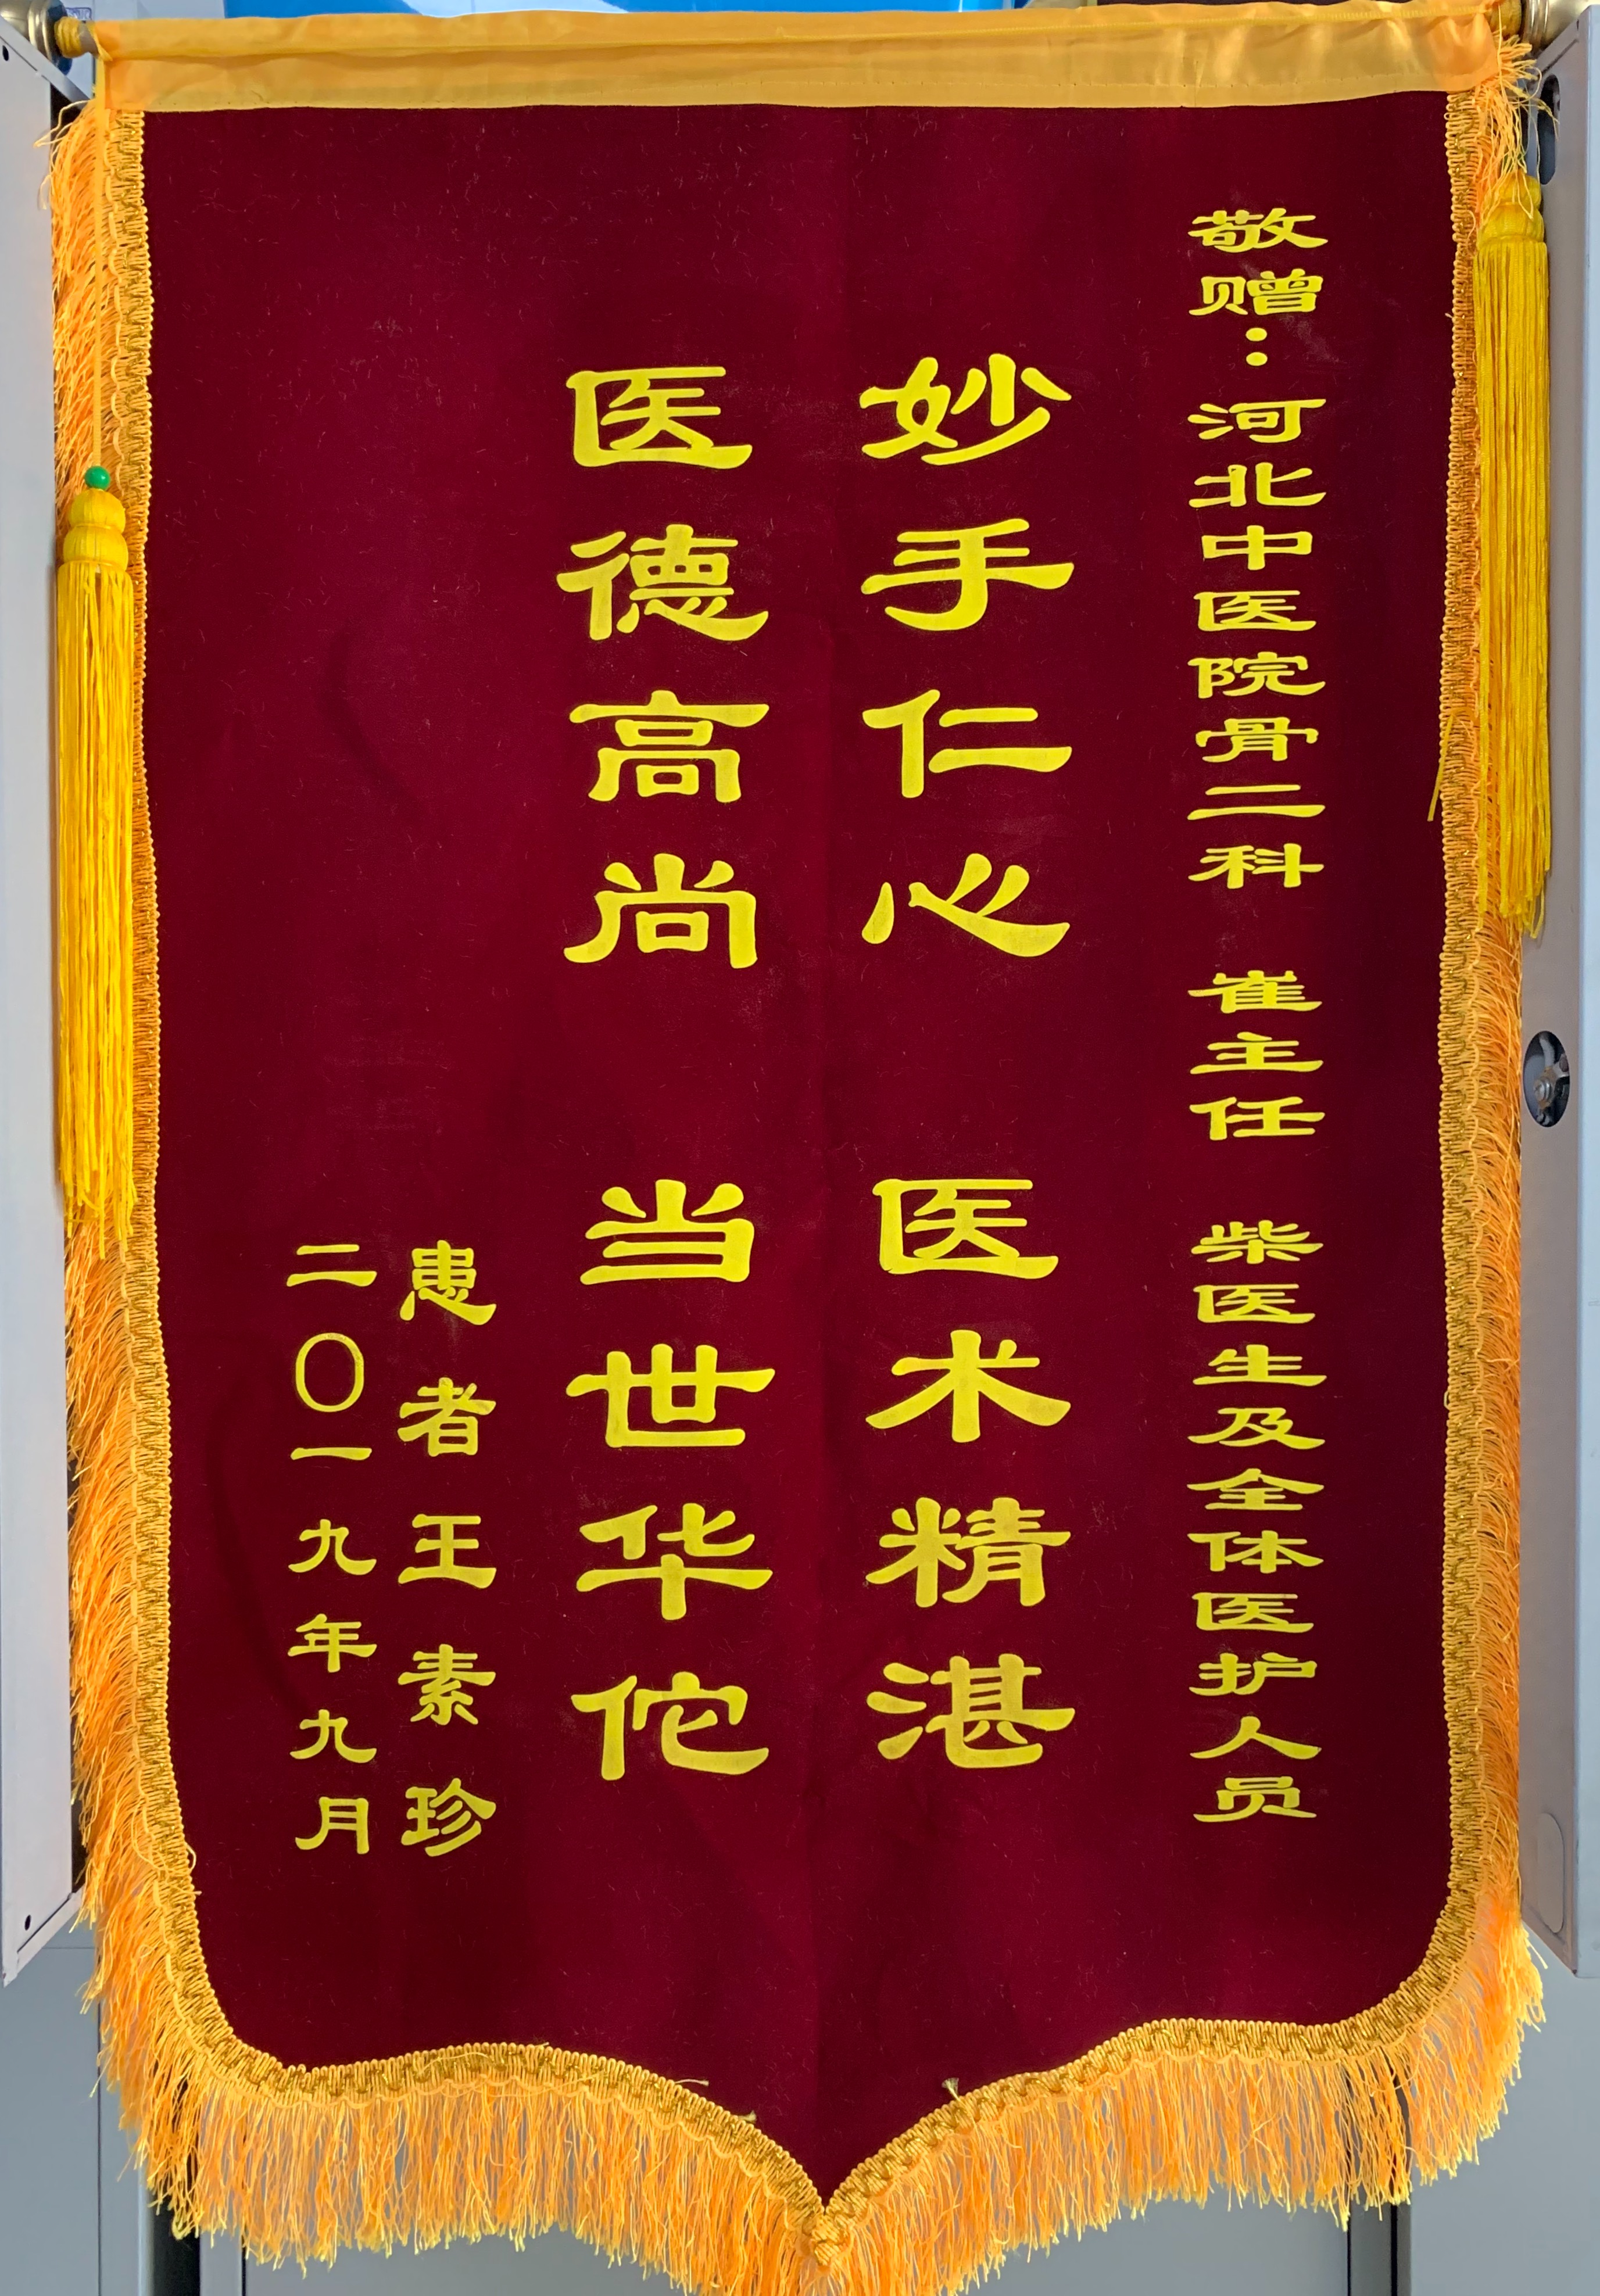 敬赠：河北中医院骨二科 崔主任 柴医生及全体医护人员
妙手仁心 医术精湛
医德高尚 当世华佗
患者王素珍
二〇一九年九月